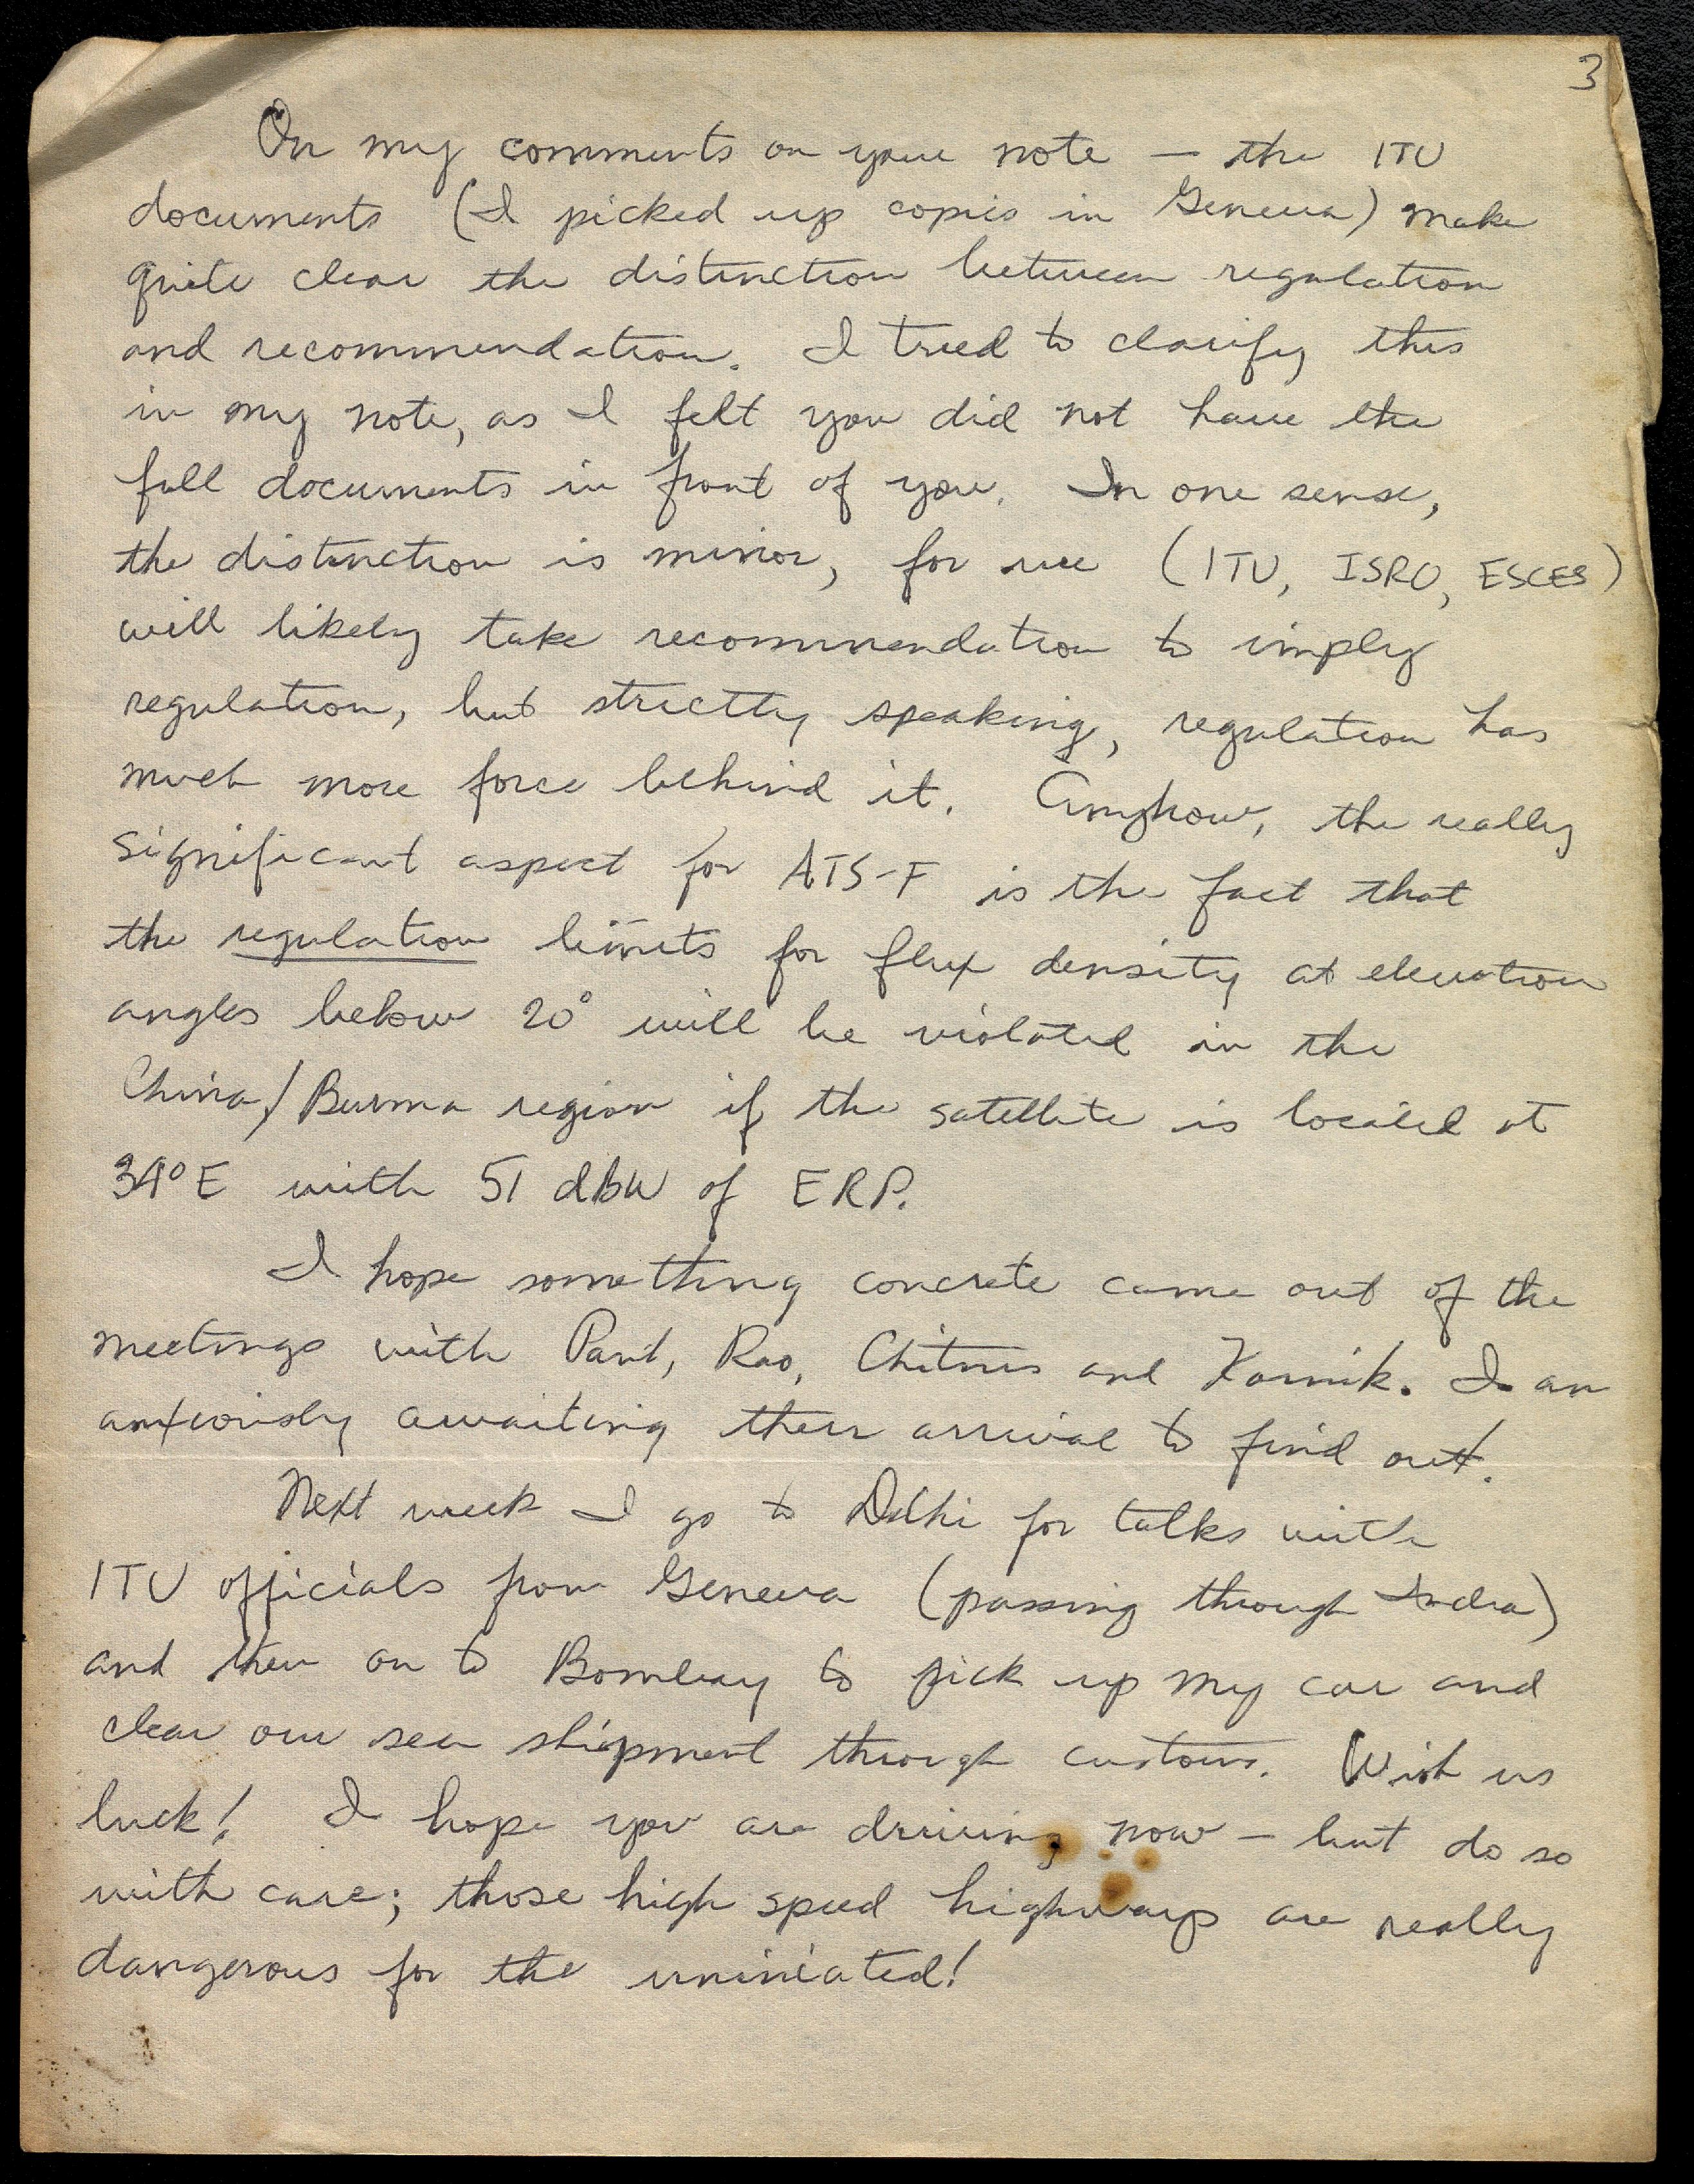 3
On my comments on your note — the ITU
documents (I picked up copies in Geneva) make
quite clear the distinction between regulation
and recommendation. I tried to clarify this
in my note, as I felt you did not have the
full documents in front of you. In one sense,
the distinction is minor, for we (ITU, ISRO, ESCES)
will likely take recommendation to imply
regulation, but strictly speaking, regulation has
much more force behind it. Anyhow, the really
significant aspect for ATS-F is the fact that
the regulation limits for flux density at elevation
angles below 20° will be violated in the
China/Burma region if the satellite is located at
34°E with 51 dbW of ERP.
I hope something concrete came out of the
meetings with Pant, Rao, Chitnis and Karnik. I am
anxiously awaiting their arrival to find out!
Next week I go to Delhi for talks with
ITU officials from Geneva (passing through India)
and then on to Bombay to pick up my car and
clear our sea shipment through customs. Wish us
luck! I hope you are driving now — but do so
with care; those high speed highways are really
dangerous for the uniniated!